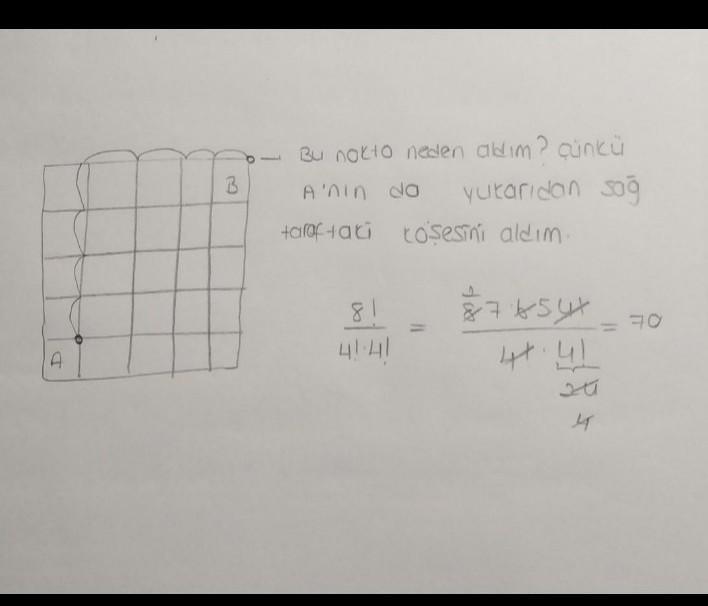 Bu nokta neden aldım? çünkü
B
A'nın da yukarıdan sağ
taraftaki köşesini aldım.
8! / 4!·4! = 8 7 6 5 4! / 4!·4! = 70
24
4
A